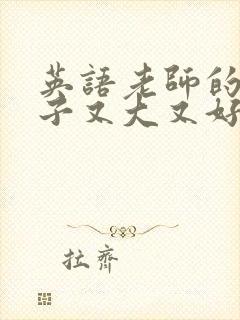 英語老師的
子又大又好
拉齊